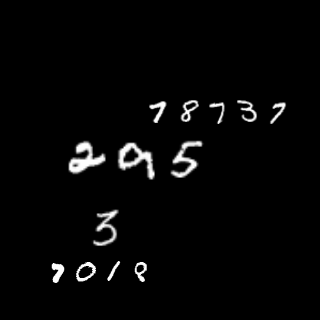 78737
295
3
7018